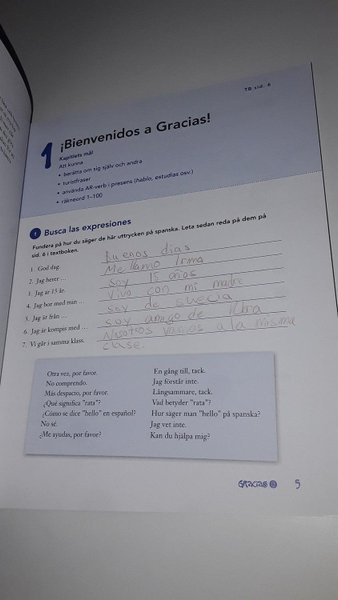 TB sid. 6
1 ¡Bienvenidos a Gracias!
Kapitlets mål
Att kunna
• berätta om sig själv och andra
• turistfraser
• använda AR-verb i presens (hablo, estudias osv.)
• räkneord 1–100
Busca las expresiones
Fundera på hur du säger de här uttrycken på spanska. Leta sedan reda på dem på
sid. 6 i textboken.
1. God dag. Buenos dias
2. Jag heter ... Me llamo Irma
3. Jag är 15 år. soy 15 años
4. Jag bor med min ... Vivo con mi madre
5. Jag är från ... soy de suecia
6. Jag är kompis med ... soy amigo de
7. Vi går i samma klass. Nosotros vamos a la misma
clase.
Otra vez, por favor. En gång till, tack.
No comprendo. Jag förstår inte.
Más despacio, por favor. Långsammare, tack.
¿Qué significa "rata"? Vad betyder "rata"?
¿Cómo se dice "hello" en español? Hur säger man "hello" på spanska?
No sé. Jag vet inte.
¿Me ayudas, por favor? Kan du hjälpa mig?
GRACIAS 5